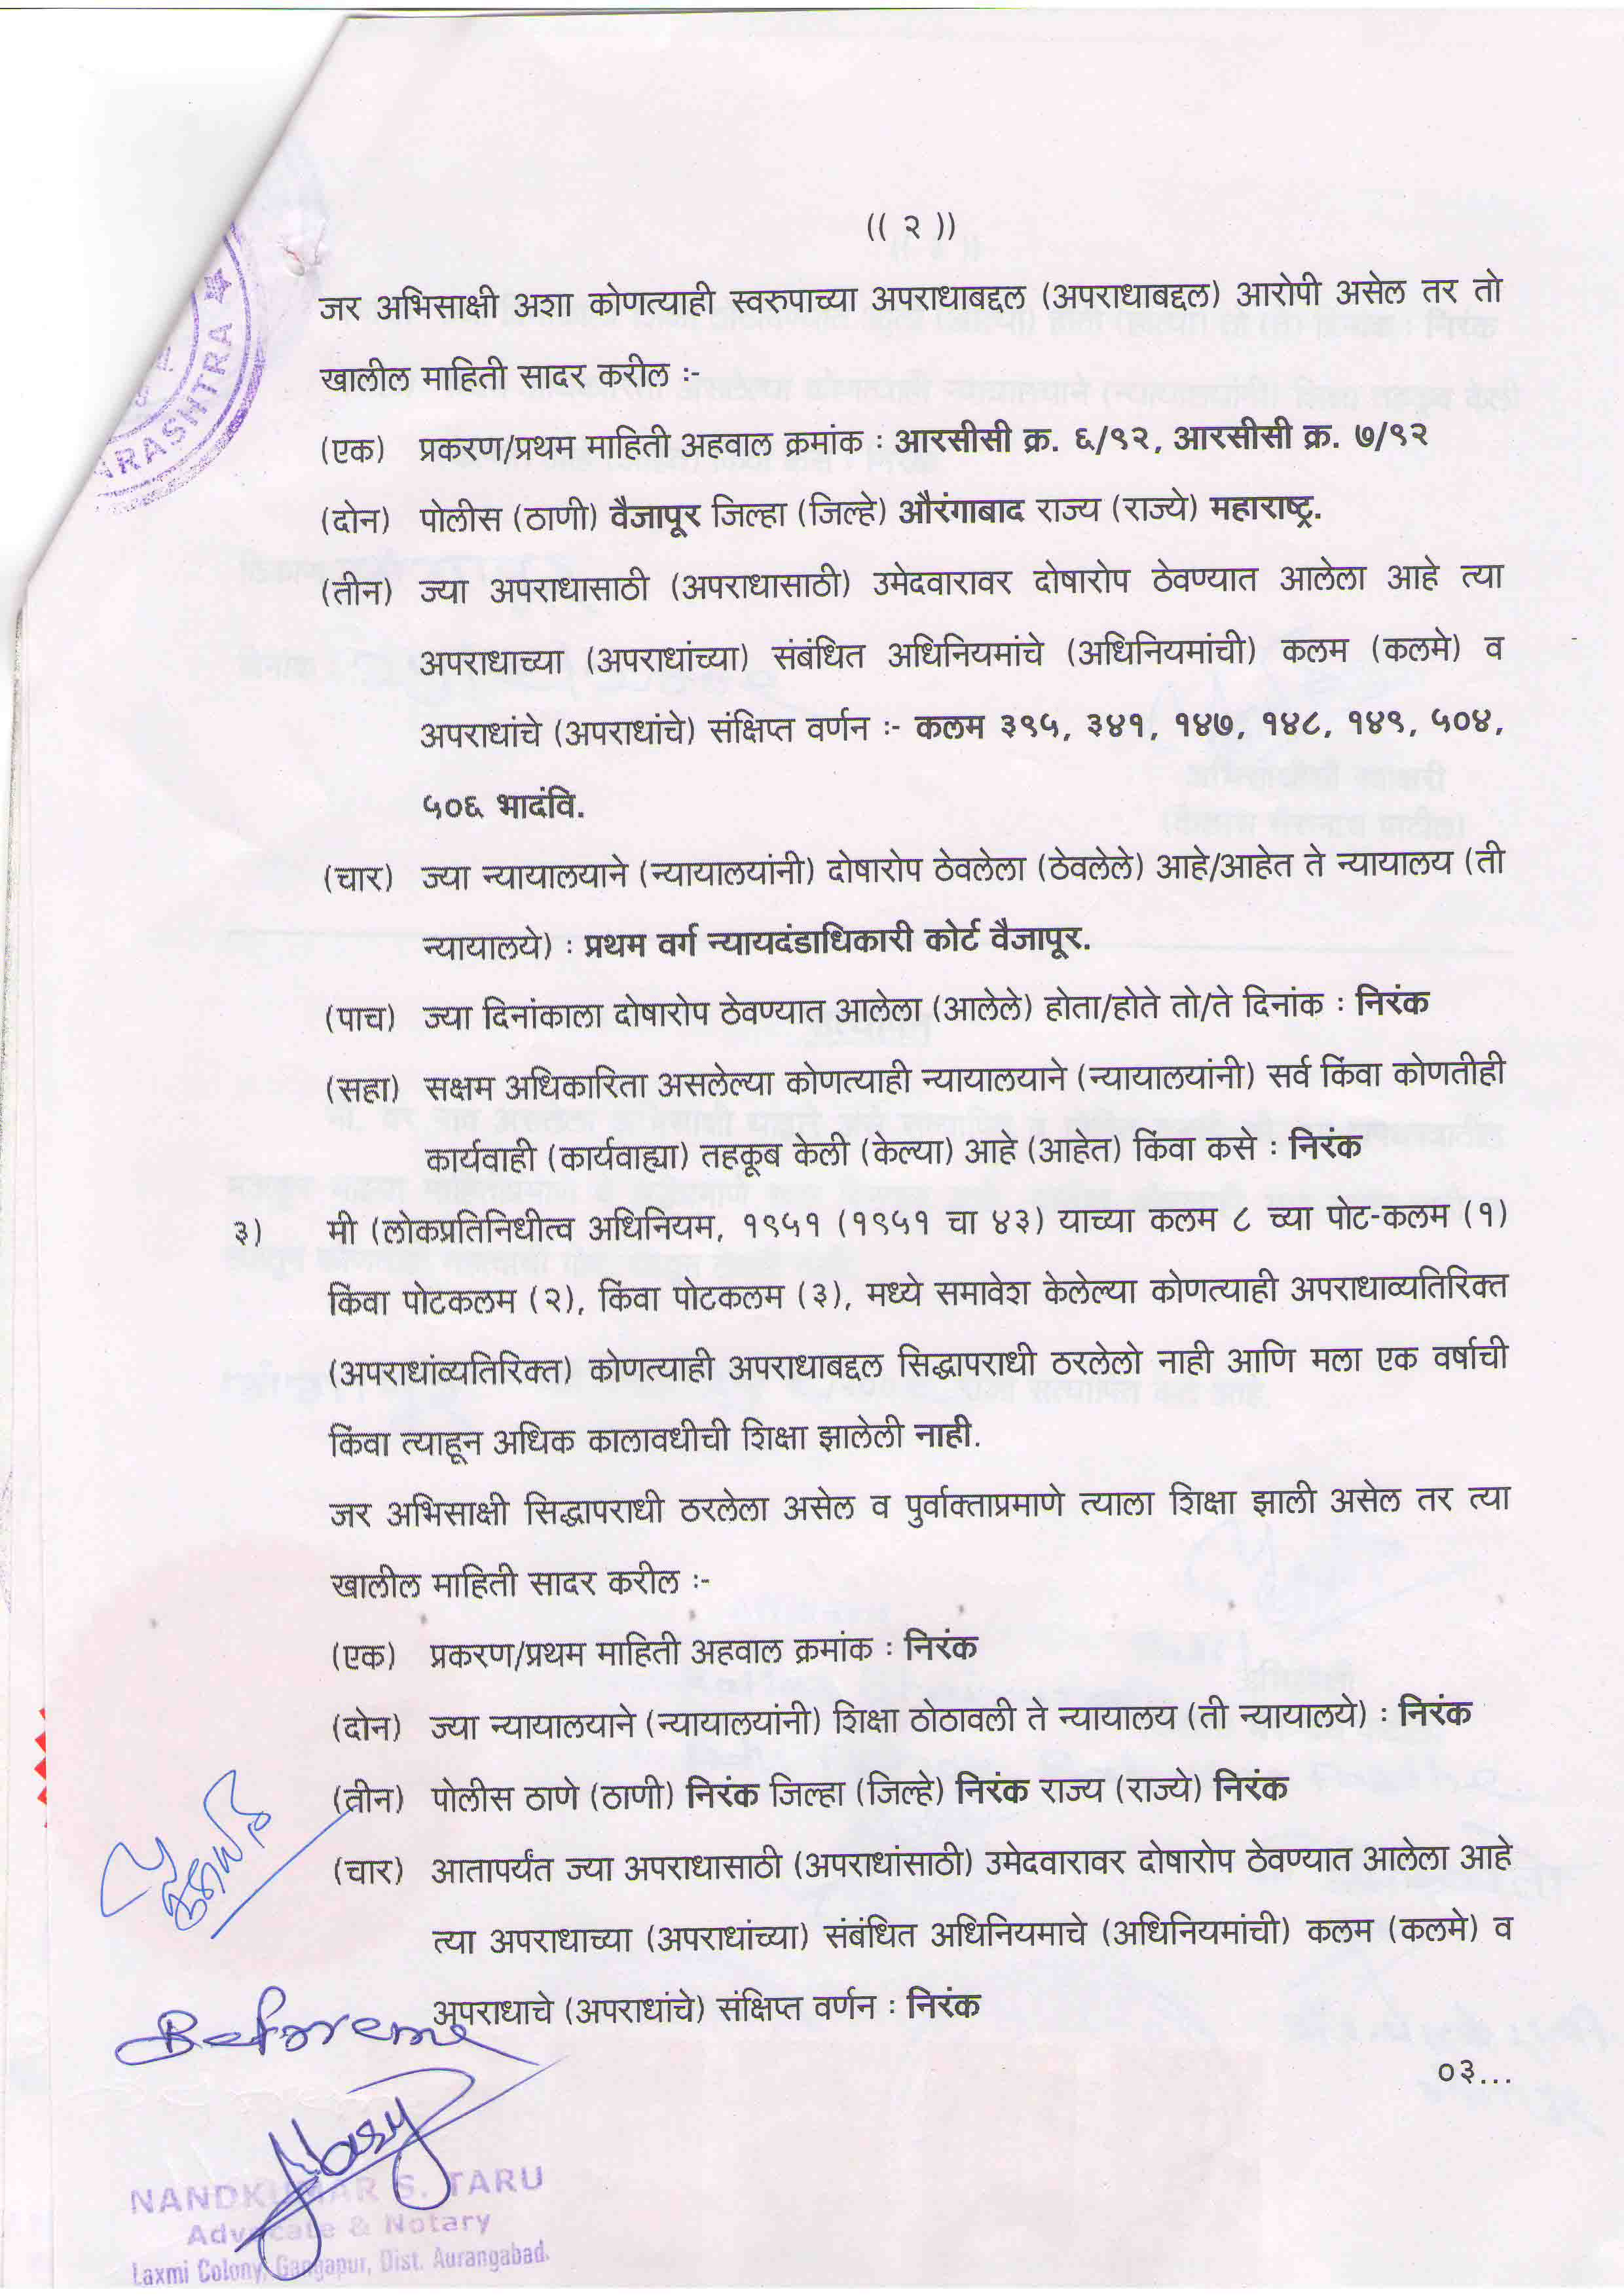 (( २ ))
जर अभिसाक्षी अशा कोणत्याही स्वरुपाच्या अपराधाबद्दल (अपराधाबद्दल) आरोपी असेल तर तो
खालील माहिती सादर करील :-
(एक) प्रकरण/प्रथम माहिती अहवाल क्रमांक : आरसीसी क्र. ६/९२, आरसीसी क्र. ७/९२
(दोन) पोलीस (ठाणी) वैजापूर जिल्हा (जिल्हे) औरंगाबाद राज्य (राज्ये) महाराष्ट्र.
(तीन) ज्या अपराधासाठी (अपराधासाठी) उमेदवारावर दोषारोप ठेवण्यात आलेला आहे त्या
अपराधाच्या (अपराधांच्या) संबंधित अधिनियमांचे (अधिनियमांची) कलम (कलमे) व
अपराधांचे (अपराधांचे) संक्षिप्त वर्णन :- कलम ३९५, ३४१, १४७, १४८, १४९, ५०४,
५०६ भादंवि.
(चार) ज्या न्यायालयाने (न्यायालयांनी) दोषारोप ठेवलेला (ठेवलेले) आहे/आहेत ते न्यायालय (ती
न्यायालये) : प्रथम वर्ग न्यायदंडाधिकारी कोर्ट वैजापूर.
(पाच) ज्या दिनांकाला दोषारोप ठेवण्यात आलेला (आलेले) होता/होते तो/ते दिनांक : निरंक
(सहा) सक्षम अधिकारिता असलेल्या कोणत्याही न्यायालयाने (न्यायालयांनी) सर्व किंवा कोणतीही
कार्यवाही (कार्यवाह्या) तहकूब केली (केल्या) आहे (आहेत) किंवा कसे : निरंक
३) मी (लोकप्रतिनिधीत्व अधिनियम, १९५१ (१९५१ चा ४३) याच्या कलम ८ च्या पोट-कलम (१)
किंवा पोटकलम (२), किंवा पोटकलम (३), मध्ये समावेश केलेल्या कोणत्याही अपराधाव्यतिरिक्त
(अपराधांव्यतिरिक्त) कोणत्याही अपराधाबद्दल सिद्धापराधी ठरलेलो नाही आणि मला एक वर्षाची
किंवा त्याहून अधिक कालावधीची शिक्षा झालेली नाही.
जर अभिसाक्षी सिद्धापराधी ठरलेला असेल व पुर्वाक्ताप्रमाणे त्याला शिक्षा झाली असेल तर त्या
खालील माहिती सादर करील :-
(एक) प्रकरण/प्रथम माहिती अहवाल क्रमांक : निरंक
(दोन) ज्या न्यायालयाने (न्यायालयांनी) शिक्षा ठोठावली ते न्यायालय (ती न्यायालये) : निरंक
(तीन) पोलीस ठाणे (ठाणी) निरंक जिल्हा (जिल्हे) निरंक राज्य (राज्ये) निरंक
(चार) आतापर्यंत ज्या अपराधासाठी (अपराधांसाठी) उमेदवारावर दोषारोप ठेवण्यात आलेला आहे
त्या अपराधाच्या (अपराधांच्या) संबंधित अधिनियमाचे (अधिनियमांची) कलम (कलमे) व
अपराधाचे (अपराधांचे) संक्षिप्त वर्णन : निरंक
Before me
०३...
NANDKUMAR S. TARU
Advocate & Notary
Laxmi Colony, Gangapur, Dist. Aurangabad.